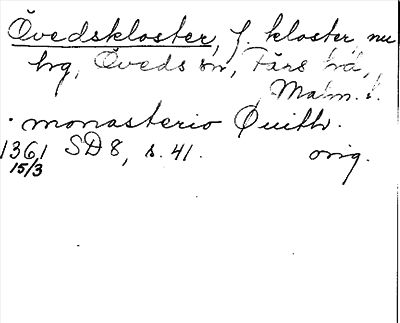 Övedskloster, f. kloster, nu
hrg, Öveds sn, Färs hd,
Malm. l.
. monasterio Øuith.
1361 SD 8, s. 41. orig.
15/3